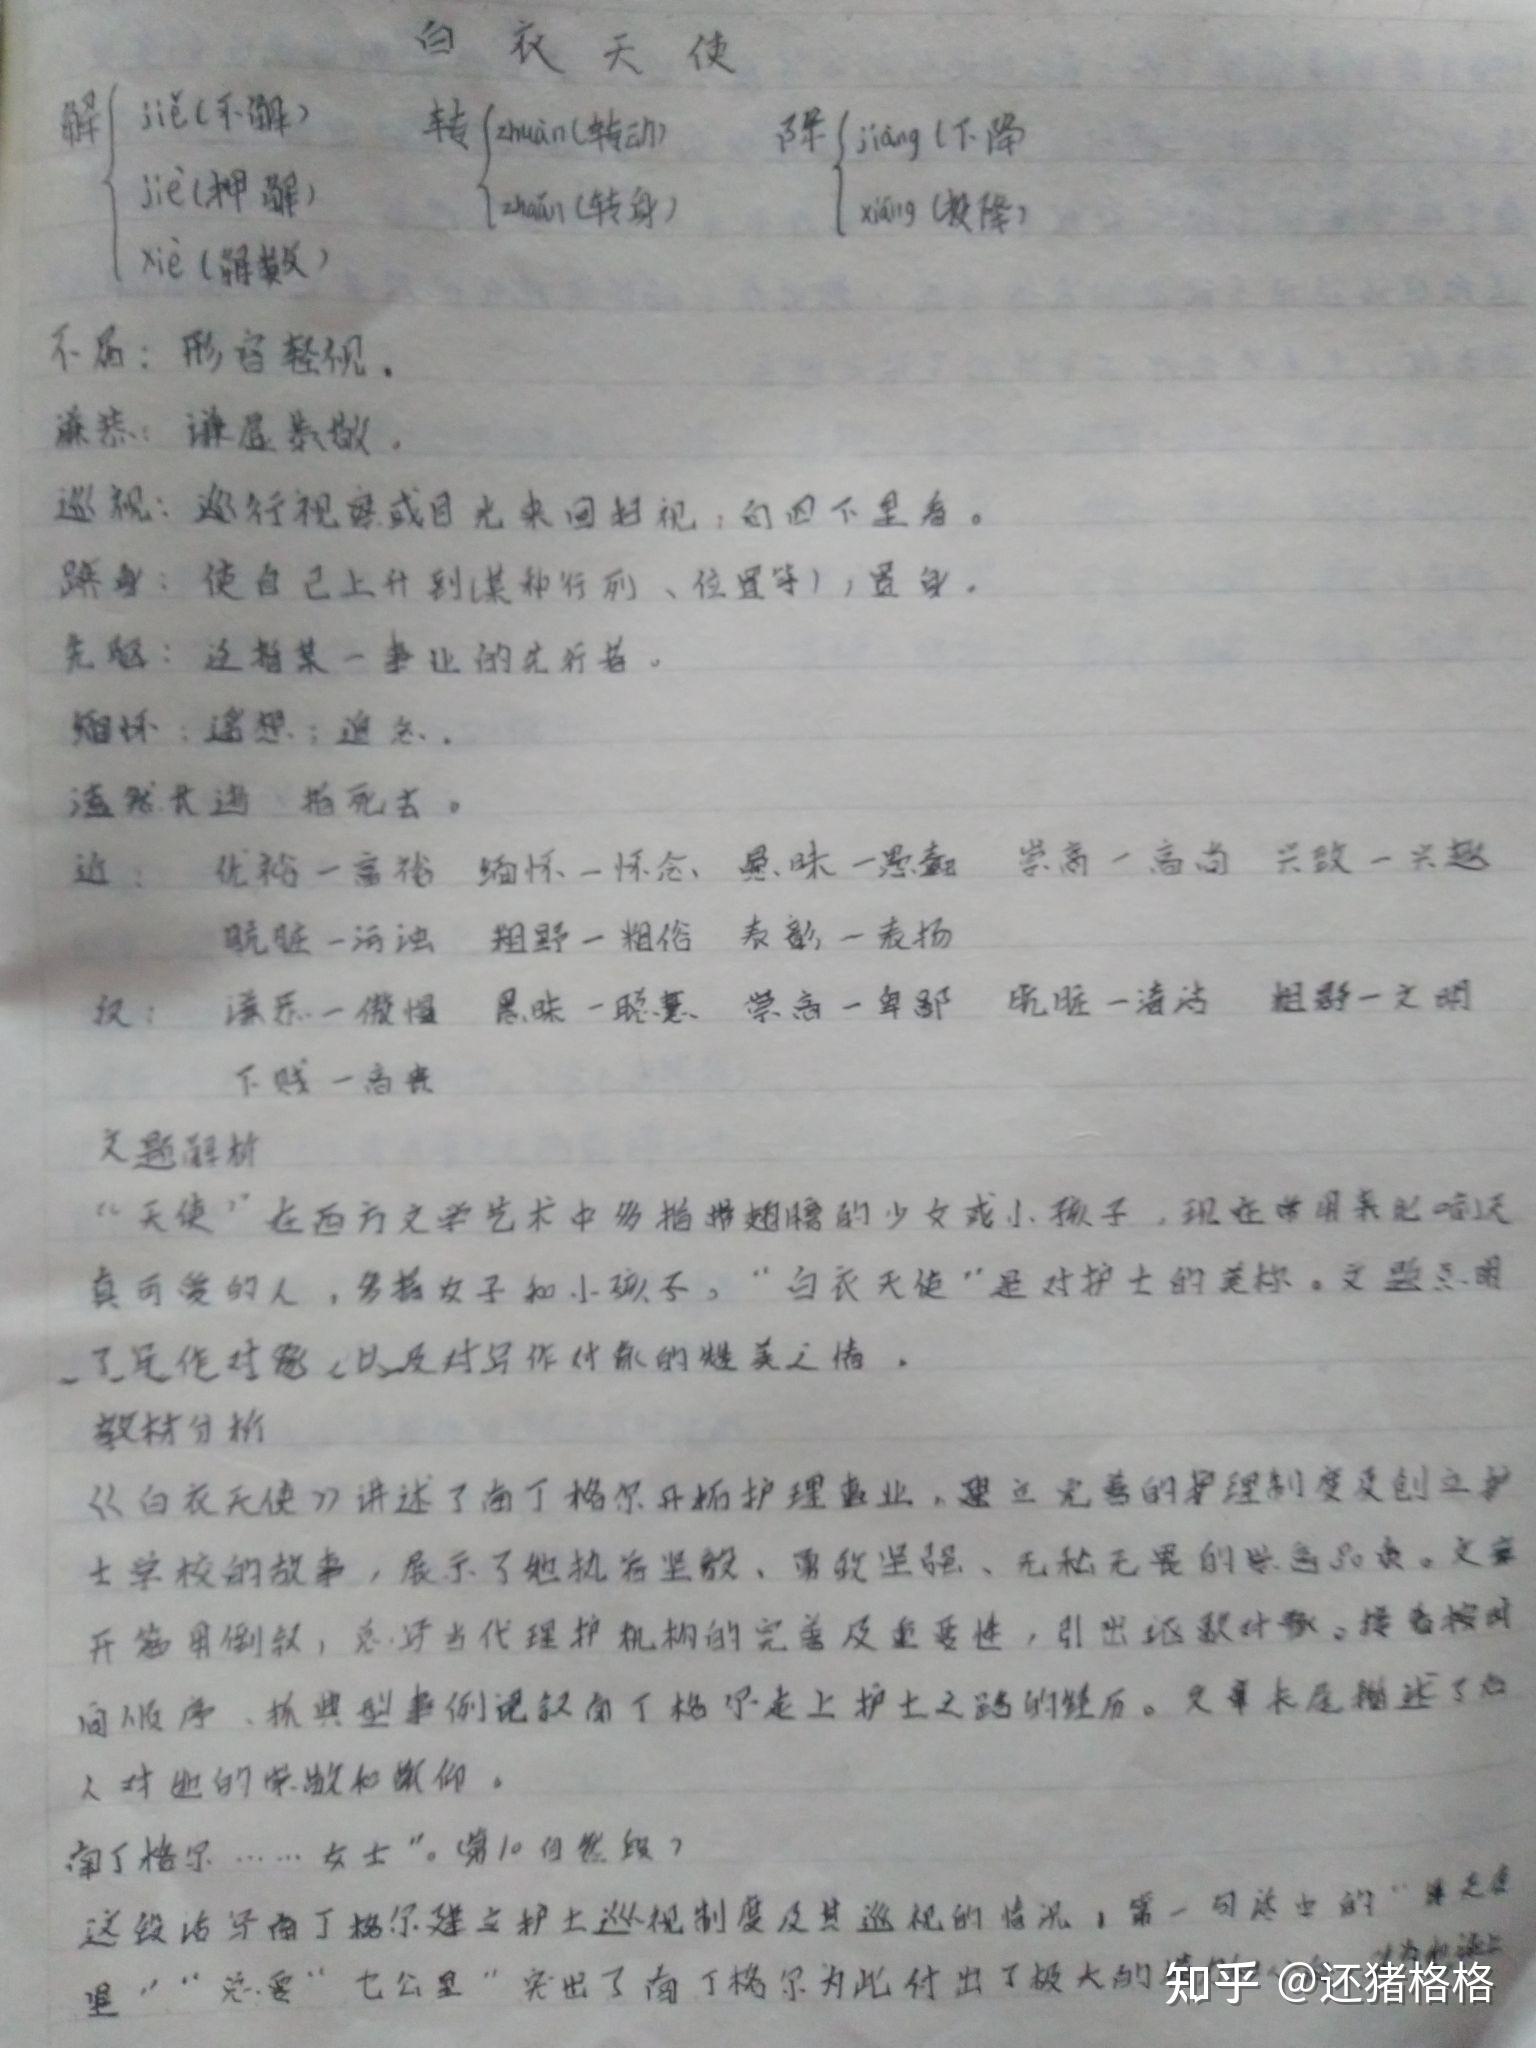 白衣天使
解 jiě(不解) 转 zhuàn(转动) 降 jiàng(下降
jiè(押解) zhuǎn(转身) xiáng(投降)
xiè(解数)
不屑：形容轻视.
谦恭：谦虚恭敬.
巡视：巡行视察或目光来回扫视，向四下里看。
跻身：使自己上升到(某种行列、位置等)，置身.
先驱：这指某一事业的先行者。
缅怀：遥想；追念.
溘然长逝 指死去。
近： 优裕—富裕 缅怀—怀念 愚昧—愚蠢 崇高—高尚 兴致—兴趣
肮脏—污浊 粗野—粗俗 表彰—表扬
反： 谦恭—傲慢 愚昧—聪慧 崇高—卑鄙 肮脏—清洁 粗野—文明
下贱—高贵
文题解析
“天使”在西方文学艺术中多指带翅膀的少女或小孩子，现在常用来比喻天
真可爱的人，多指女子和小孩子，“白衣天使”是对护士的美称。文题点明
了写作对象，以及对写作对象的赞美之情.
教材分析
《白衣天使》讲述了南丁格尔开拓护理事业，建立完善的护理制度及创立护
士学校的故事，展示了她执着坚毅、勇敢坚强、无私无畏的崇高品质。文章
开篇用倒叙，总写当代理护机构的完善及重要性，引出记叙对象。接着按时
间顺序、抓典型事例记叙南丁格尔走上护士之路的经历。文章末尾描述了后
人对她的崇敬和敬仰.
南丁格尔……女士”。(第10自然段)
这段话写南丁格尔建立护士巡视制度及其巡视的情况，第一句话中的“
里”“总要”七公里”突出了南丁格尔为此付出了极大的
知乎 @还猪格格